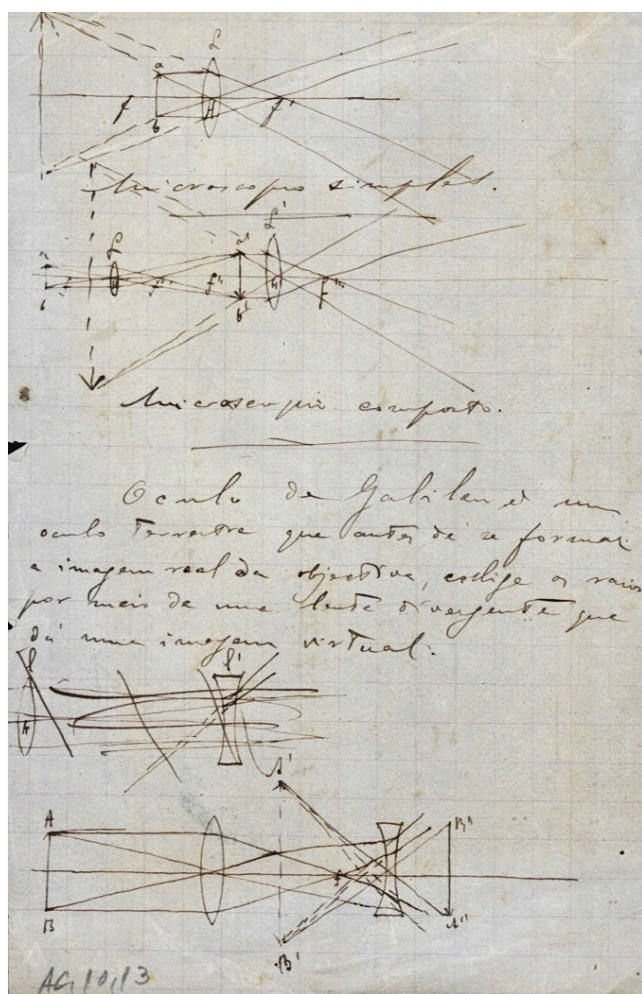 L
a
f
b
f'
Microscopio simples.
L'
L
a
a'
b
f'
f''
b'
f'''
Microscopio composto.
Oculo de Galileu é um
oculo terrestre que antes de se formar
a imagem real da objectiva, collige os raios
por meio de uma lente divergente que
dá uma imagem virtual.
l
l'
A'
A
B''
B
A''
B'
AG,10,13